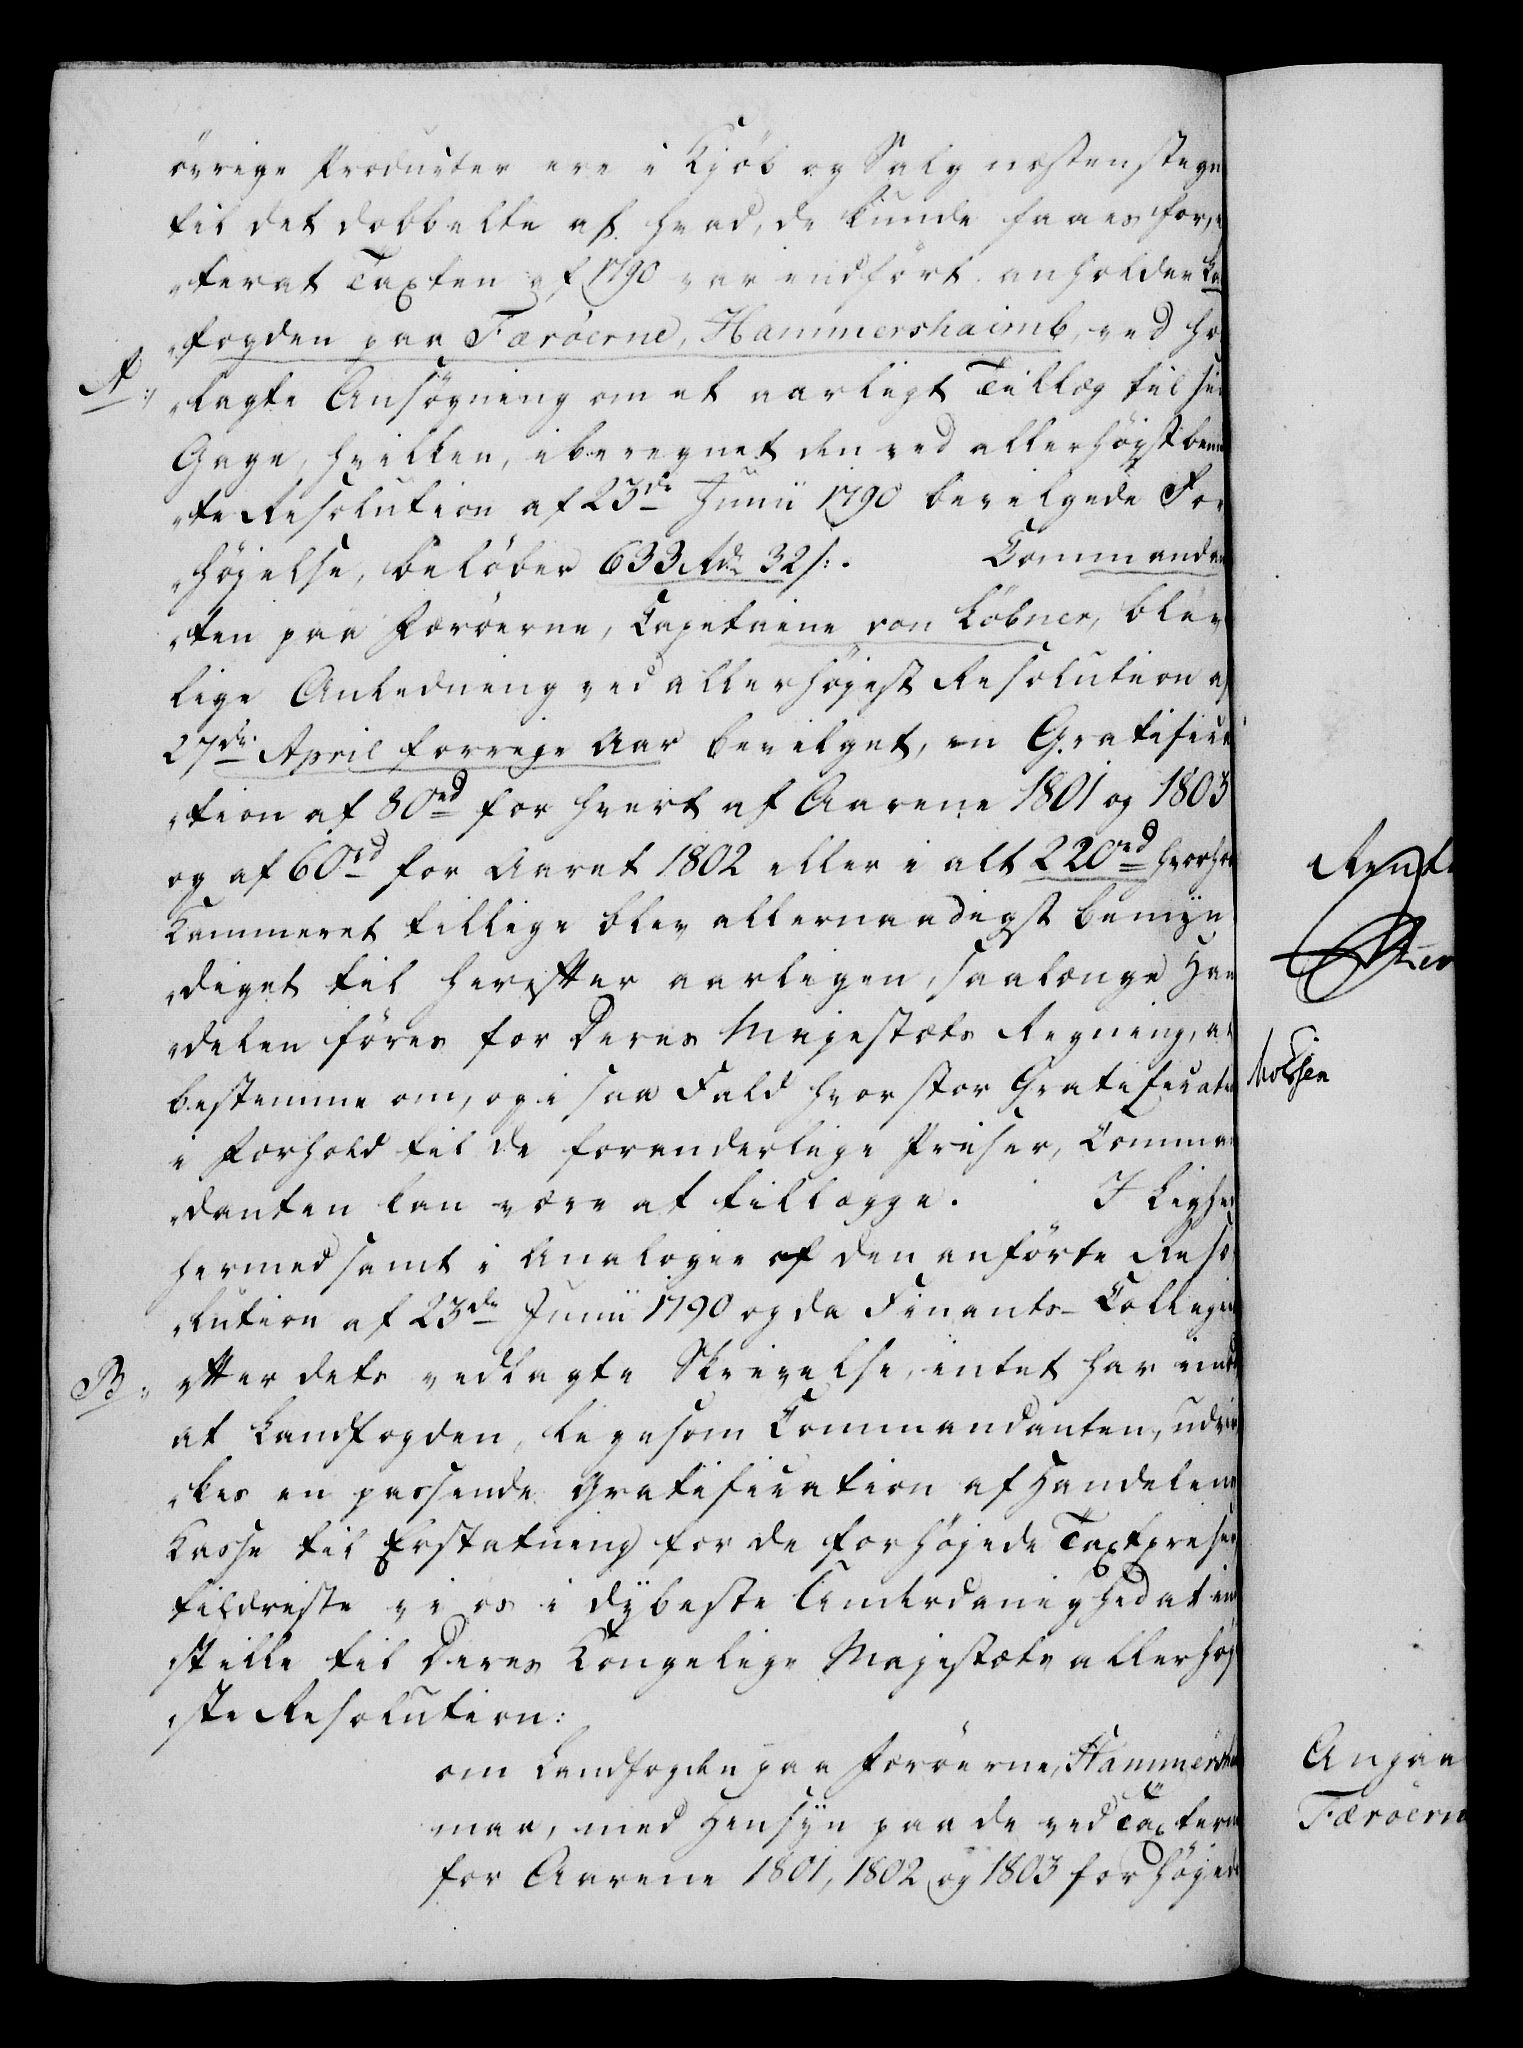 övrige Producter ere i Kjöb og Salg næsten stegne
til det dobbelte af hvad, de kunde faaes for,
„terat Taxten af 1790 var indfört anholder La
„fogden paa Færöerne, Hammershaimb, ved he
A:, „lagte Ansögning om et aarligt Tillæg til sin
Gage, hvilken, iberegnet den ved allerhöystbem
„te Resolution af 23de Junii 1790 bevilgede For
„höjelse, belöber 633 Rd 32 s:. Commandan
„ten paa Færöerne, Capitaine von Löbner, blev
lige Anledning ved allerhöjest Resolution af
27de April forrige Aar bevilget, en Gratifica
„tion af 80rd for hvert af Aarene 1801 og 1803
og af 60rd for Aaret 1802 eller i alt 220rd
Kammeret tillige blev allernaadigst bemÿn
„diget til herefter aarligen, saalænge Han
„delen föres for Deres Majestæts Regning, at
bestemme om, og i saa Fald hvor stor Gratification
i Forhold til de foranderlige Priser, Comman
„danten kan være at tillægge. I Lighed
hermed samt i Analogie af den anförte Reso
„lution af 23de Junii 1790 og da Finants-Collegiet
B: efter dets vedlagte Skrivelse, intet har imod
at Landfogden, ligesom Commandanten, udvir
„kes en passende Gratification af Handelens
Kasse til Erstatning for de forhöjede Taxtpriser
tildriste vi os i dÿbeste Underdanighed at ind
stille til Deres Kongelige Majestæts allerhöj
„ste Resolution:
om Landfogden paa Færöerne, Hammersha
maa, med Hensÿn paa de ved Taxterne
for Aarene 1801, 1802 og 1803 forhöjede
Rente
Angaa
Færöerne